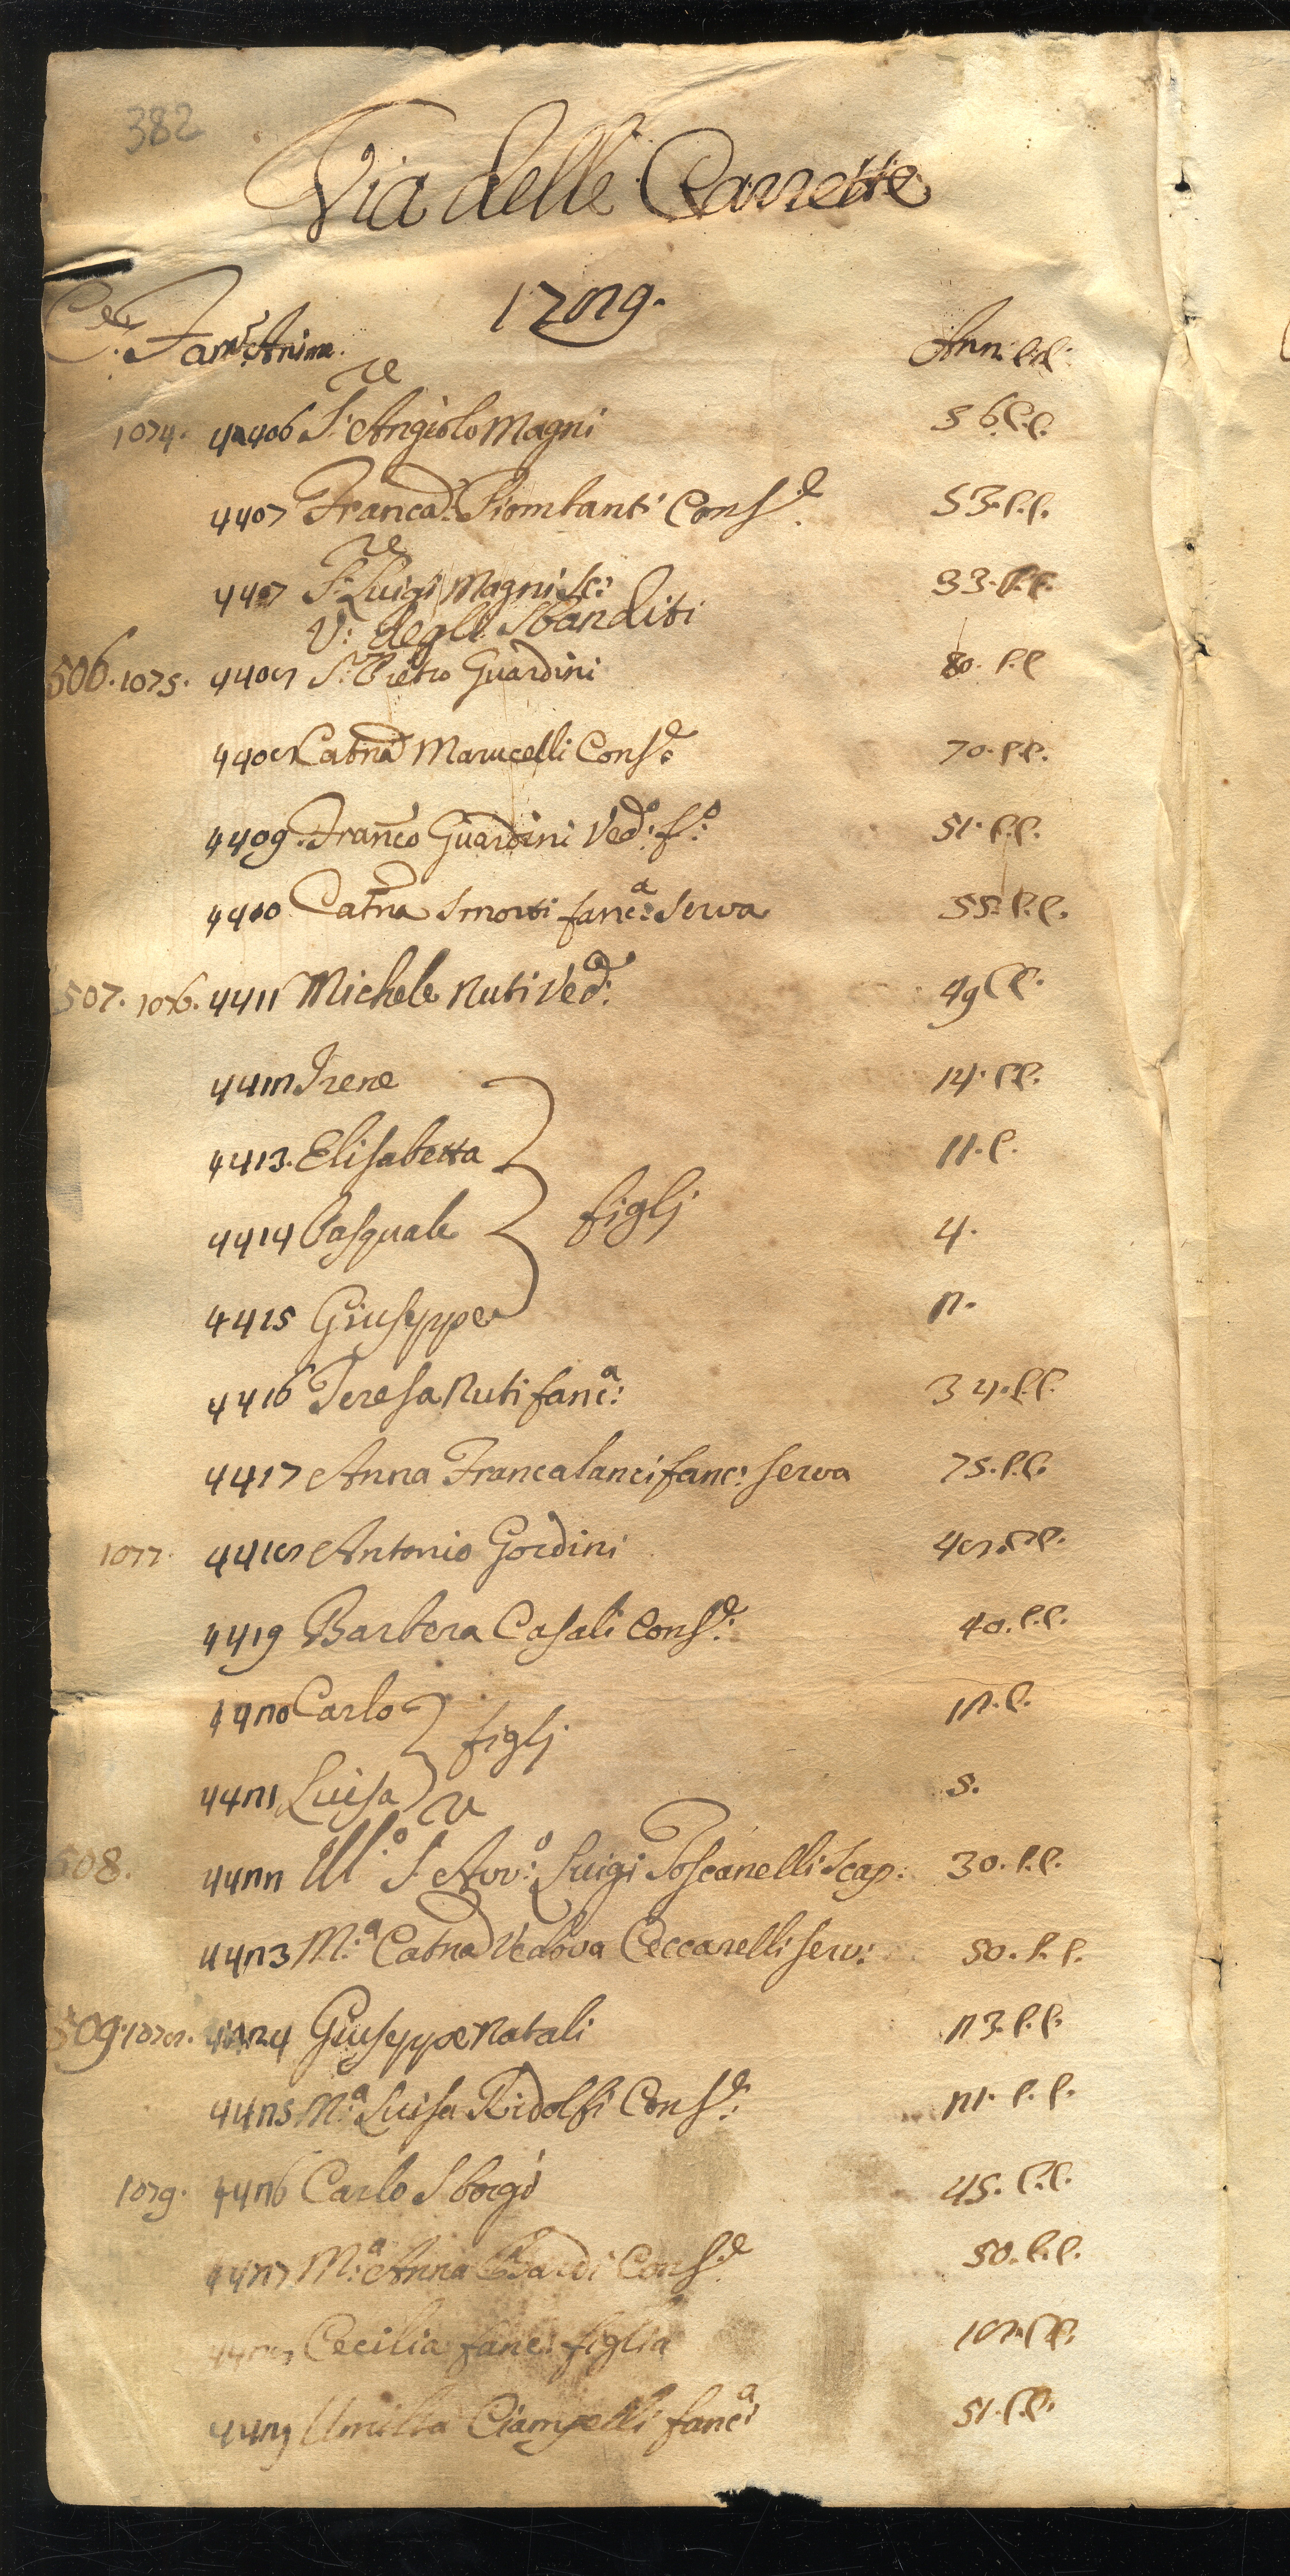 382
Via delle Carrette
1729.
Ce. Fam. Anime. Anni. C.C.
1074. 4406 S.re Angiolo Magni 56 C.C.
4407 Franca. Piombanti Cons.e 53. C.C.
4407 S.re Luigi Magni Sc: 33. C.C.
V: degli Sbanditi
506. 1075. 4408 S. Pietro Guardini 80. C.C
4408 Catna Marucelli Cons.e 70. C.C.
4409. Franco Guardini Ved.o f.o 51. C.C.
4410 Catna Smorti fanc.a Serva 55. C.C.
507. 1076. 4411 Michele Nuti Ved.o 49 C.C.
4412 Irene 14. C.C.
4413. Elisabetta 11. C.
figlj
4414 Pasquale 4.
4415 Giuseppe 2.
4416 Teresa Nuti fanc.a: 34. C.C.
4417 Anna Francalanci fanc: serva 75. C.C.
1077. 4418 Antonio Gordini 48. C.C.
4419 Barbera Casali Cons.e: 40. C.C.
4420 Carlo 12. C.
figlj
4421 Luisa 5.
508. 4422 Ill.o S.re Avv.o: Luigi Toscanelli Scap: 30. C.C.
4423 M.a Catna Vedova Ceccarelli serv: 50. C.C.
509. 1078. 4424 Giuseppe Natali 23. C.C.
4425 M.a Luisa Ridolfi Cons.e: 21. C.C.
1079. 4426 Carlo Sborgi 45. C.C.
4427 M.a Anna Bardi Cons.e 50. C.C.
4428 Cecilia fanc: figlia 18. C.C.
4429 Umilta Ciampelli fanc.a 51. C.C.